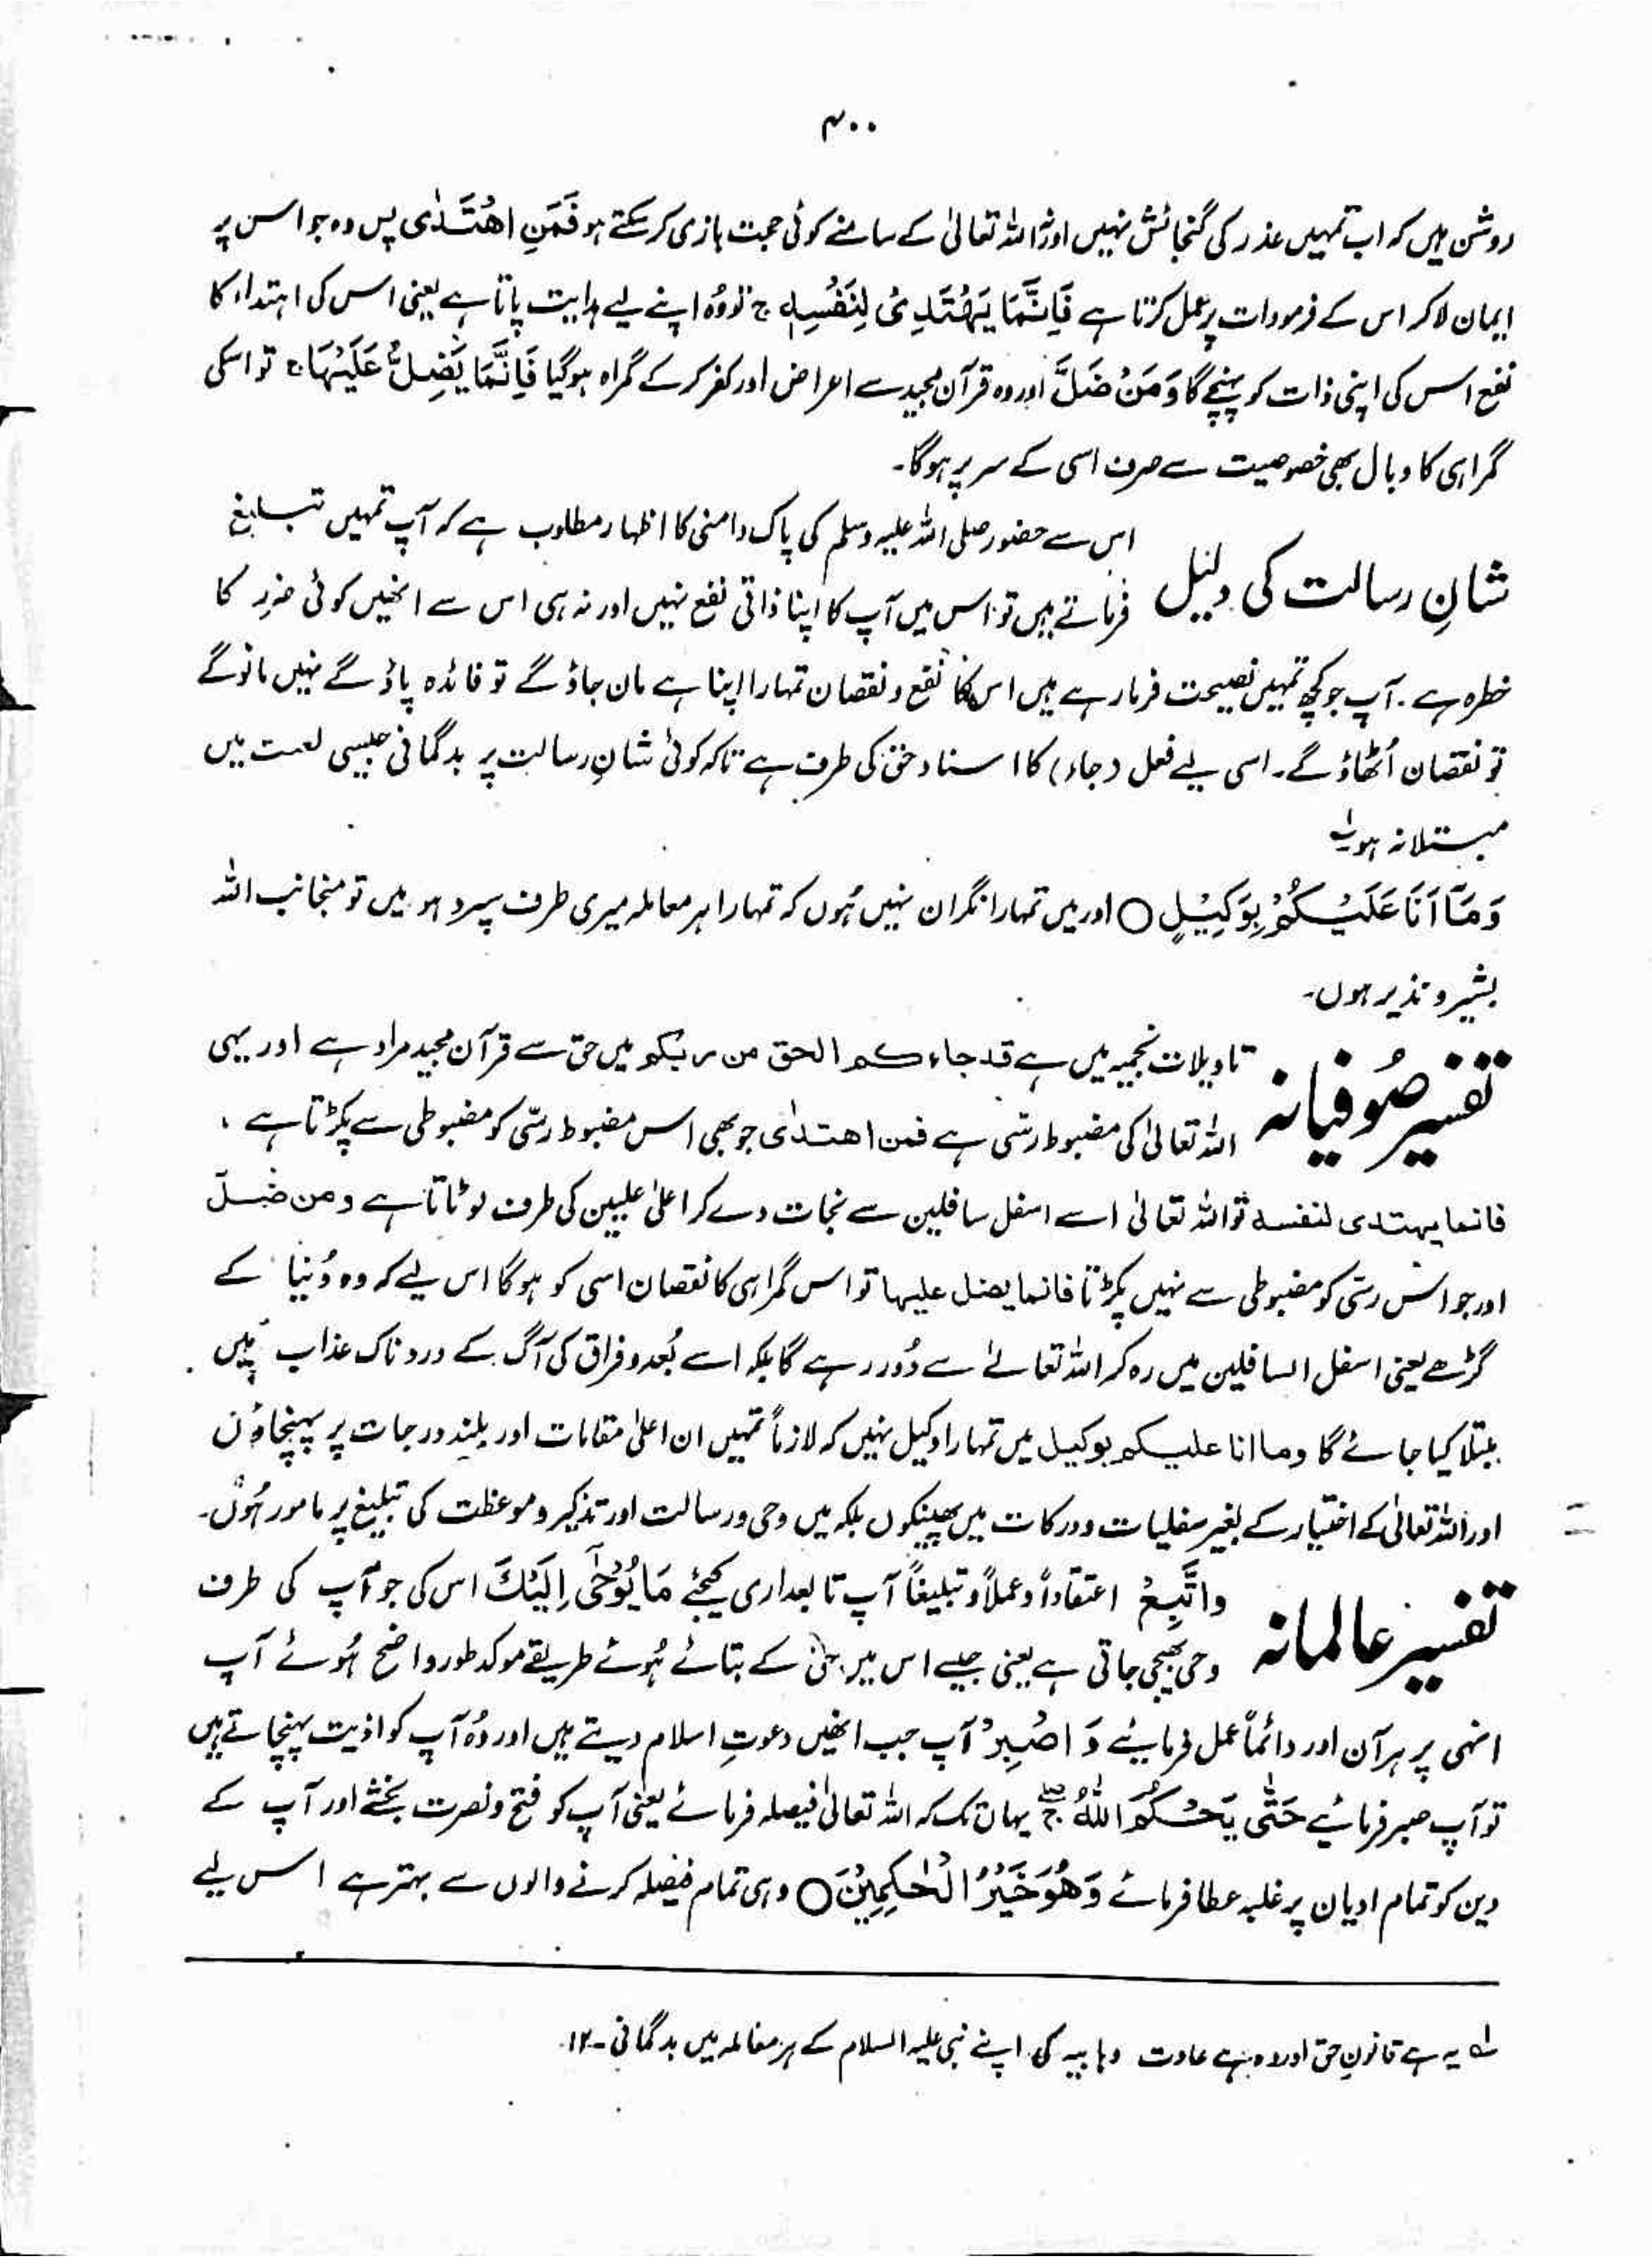 ۴۰۰
روشن ہیں کہ اب تمہیں عذر کی گنجائش نہیں اور نہ اللہ تعالیٰ کے سامنے کوئی حجت بازی کر سکتے ہو فَمَنِ اهْتَدٰى پس وہ جو اس پر
ایمان لا کر اس کے فرمودات پر عمل کرتا ہے فَاِنَّمَا يَهْتَدِىْ لِنَفْسِهٖ ج تو وُہ اپنے لیے ہدایت پاتا ہے یعنی اس کی اہتداء کا
نفع اس کی اپنی ذات کو پہنچے گا وَمَنْ ضَلَّ اور وہ قرآن مجید سے اعراض اور کفر کر کے گمراہ ہو گیا فَاِنَّمَا يَضِلُّ عَلَيْهَا ج تو اسکی
گمراہی کا وبال بھی خصوصیت سے صرف اسی کے سر پر ہوگا۔
شانِ رسالت کی دلیل
اس سے حضور صلی اللہ علیہ وسلم کی پاک دامنی کا اظہار مطلوب ہے کہ آپ تمہیں تبلیغ
فرماتے ہیں تو اس میں آپ کا اپنا ذاتی نفع نہیں اور نہ ہی اس سے انھیں کوئی ضرر کا
خطرہ ہے۔ آپ جو کچھ تمہیں نصیحت فرما رہے ہیں اس کا نفع و نقصان تمہارا اپنا ہے مان جاؤ گے تو فائدہ پاؤ گے نہیں مانو گے
تو نقصان اُٹھاؤ گے۔ اسی لیے فعل (جاء) کا اسناد حق کی طرف ہے تاکہ کوئی شانِ رسالت پر بدگمانی جیسی لعنت میں
مبتلا نہ ہو لہ
وَمَآ اَنَا عَلَيْكُمْ بِوَكِيْلٍ ○ اور میں تمہارا نگران نہیں ہُوں کہ تمہارا ہر معاملہ میری طرف سپرد ہو میں تو منجانب اللہ
بشیر و نذیر ہوں۔
تفسیر صُوفیانہ
تاویلات نجمیہ میں ہے قد جاءكم الحق من ربكم میں حق سے قرآن مجید مراد ہے اور یہی
اللہ تعالیٰ کی مضبوط رسّی ہے فمن اهتدٰى جو بھی اس مضبوط رسّی کو مضبوطی سے پکڑتا ہے ،
فانما يهتدى لنفسه تو اللہ تعالیٰ اسے اسفل سافلین سے نجات دے کر اعلیٰ علیین کی طرف لوٹاتا ہے ومن ضلّ
اور جو اس رسّی کو مضبوطی سے نہیں پکڑتا فانما يضل عليها تو اس گمراہی کا نقصان اسی کو ہوگا اس لیے کہ وہ دُنیا کے
گڑھے یعنی اسفل السافلین میں رہ کر اللہ تعالےٰ سے دُور رہے گا بلکہ اسے بُعد و فراق کی آگ کے دردناک عذاب میں
مبتلا کیا جائے گا وما انا عليكم بوكيل میں تمہارا وکیل نہیں کہ لازماً تمہیں ان اعلیٰ مقامات اور بلند درجات پر پہنچاؤں
اور اللہ تعالیٰ کے اختیار کے بغیر سفلیات و درکات میں پھینکوں بلکہ میں وحی و رسالت اور تذکیر و موعظت کی تبلیغ پر مامور ہُوں۔
تفسیر عالمانہ
وَاتَّبِعْ اعتقاداً و عملاً و تبلیغاً آپ تابعداری کیجئے مَا يُوْحٰٓى اِلَيْكَ اس کی جو آپ کی طرف
وحی بھیجی جاتی ہے یعنی جیسے اس میں حق کے بتائے ہُوئے طریقے موکد طور واضح ہُوئے آپ
انہی پر ہر آن اور دائماً عمل فرمائیے وَاصْبِرْ آپ جب انھیں دعوتِ اسلام دیتے ہیں اور وُہ آپ کو اذیت پہنچاتے ہیں
تو آپ صبر فرمائیے حَتّٰى يَحْكُمَ اللّٰهُ ج یہاں تک کہ اللہ تعالیٰ فیصلہ فرمائے یعنی آپ کو فتح و نصرت بخشے اور آپ کے
دین کو تمام ادیان پر غلبہ عطا فرمائے وَهُوَ خَيْرُ الْحٰكِمِيْنَ ○ وہی تمام فیصلہ کرنے والوں سے بہتر ہے اس لیے
لہ یہ ہے قانونِ حق اور وہ ہے عادت وہابیہ کی اپنے نبی علیہ السلام کے ہر معاملہ میں بدگمانی۔ ۱۲